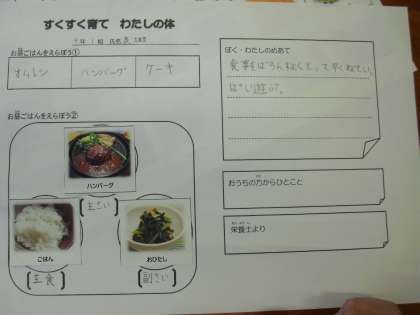 すくすく育て わたしの体
お昼ごはんをえらぼう①
オムレツ ハンバーグ ケーキ
お昼ごはんをえらぼう②
ハンバーグ
主さい
ごはん
主食
おひたし
副さい
ぼく・わたしのめあて
食事をばらんすよくとって早くねていっ
ぱい遊ぶ。
おうちの方からひとこと
栄養士より